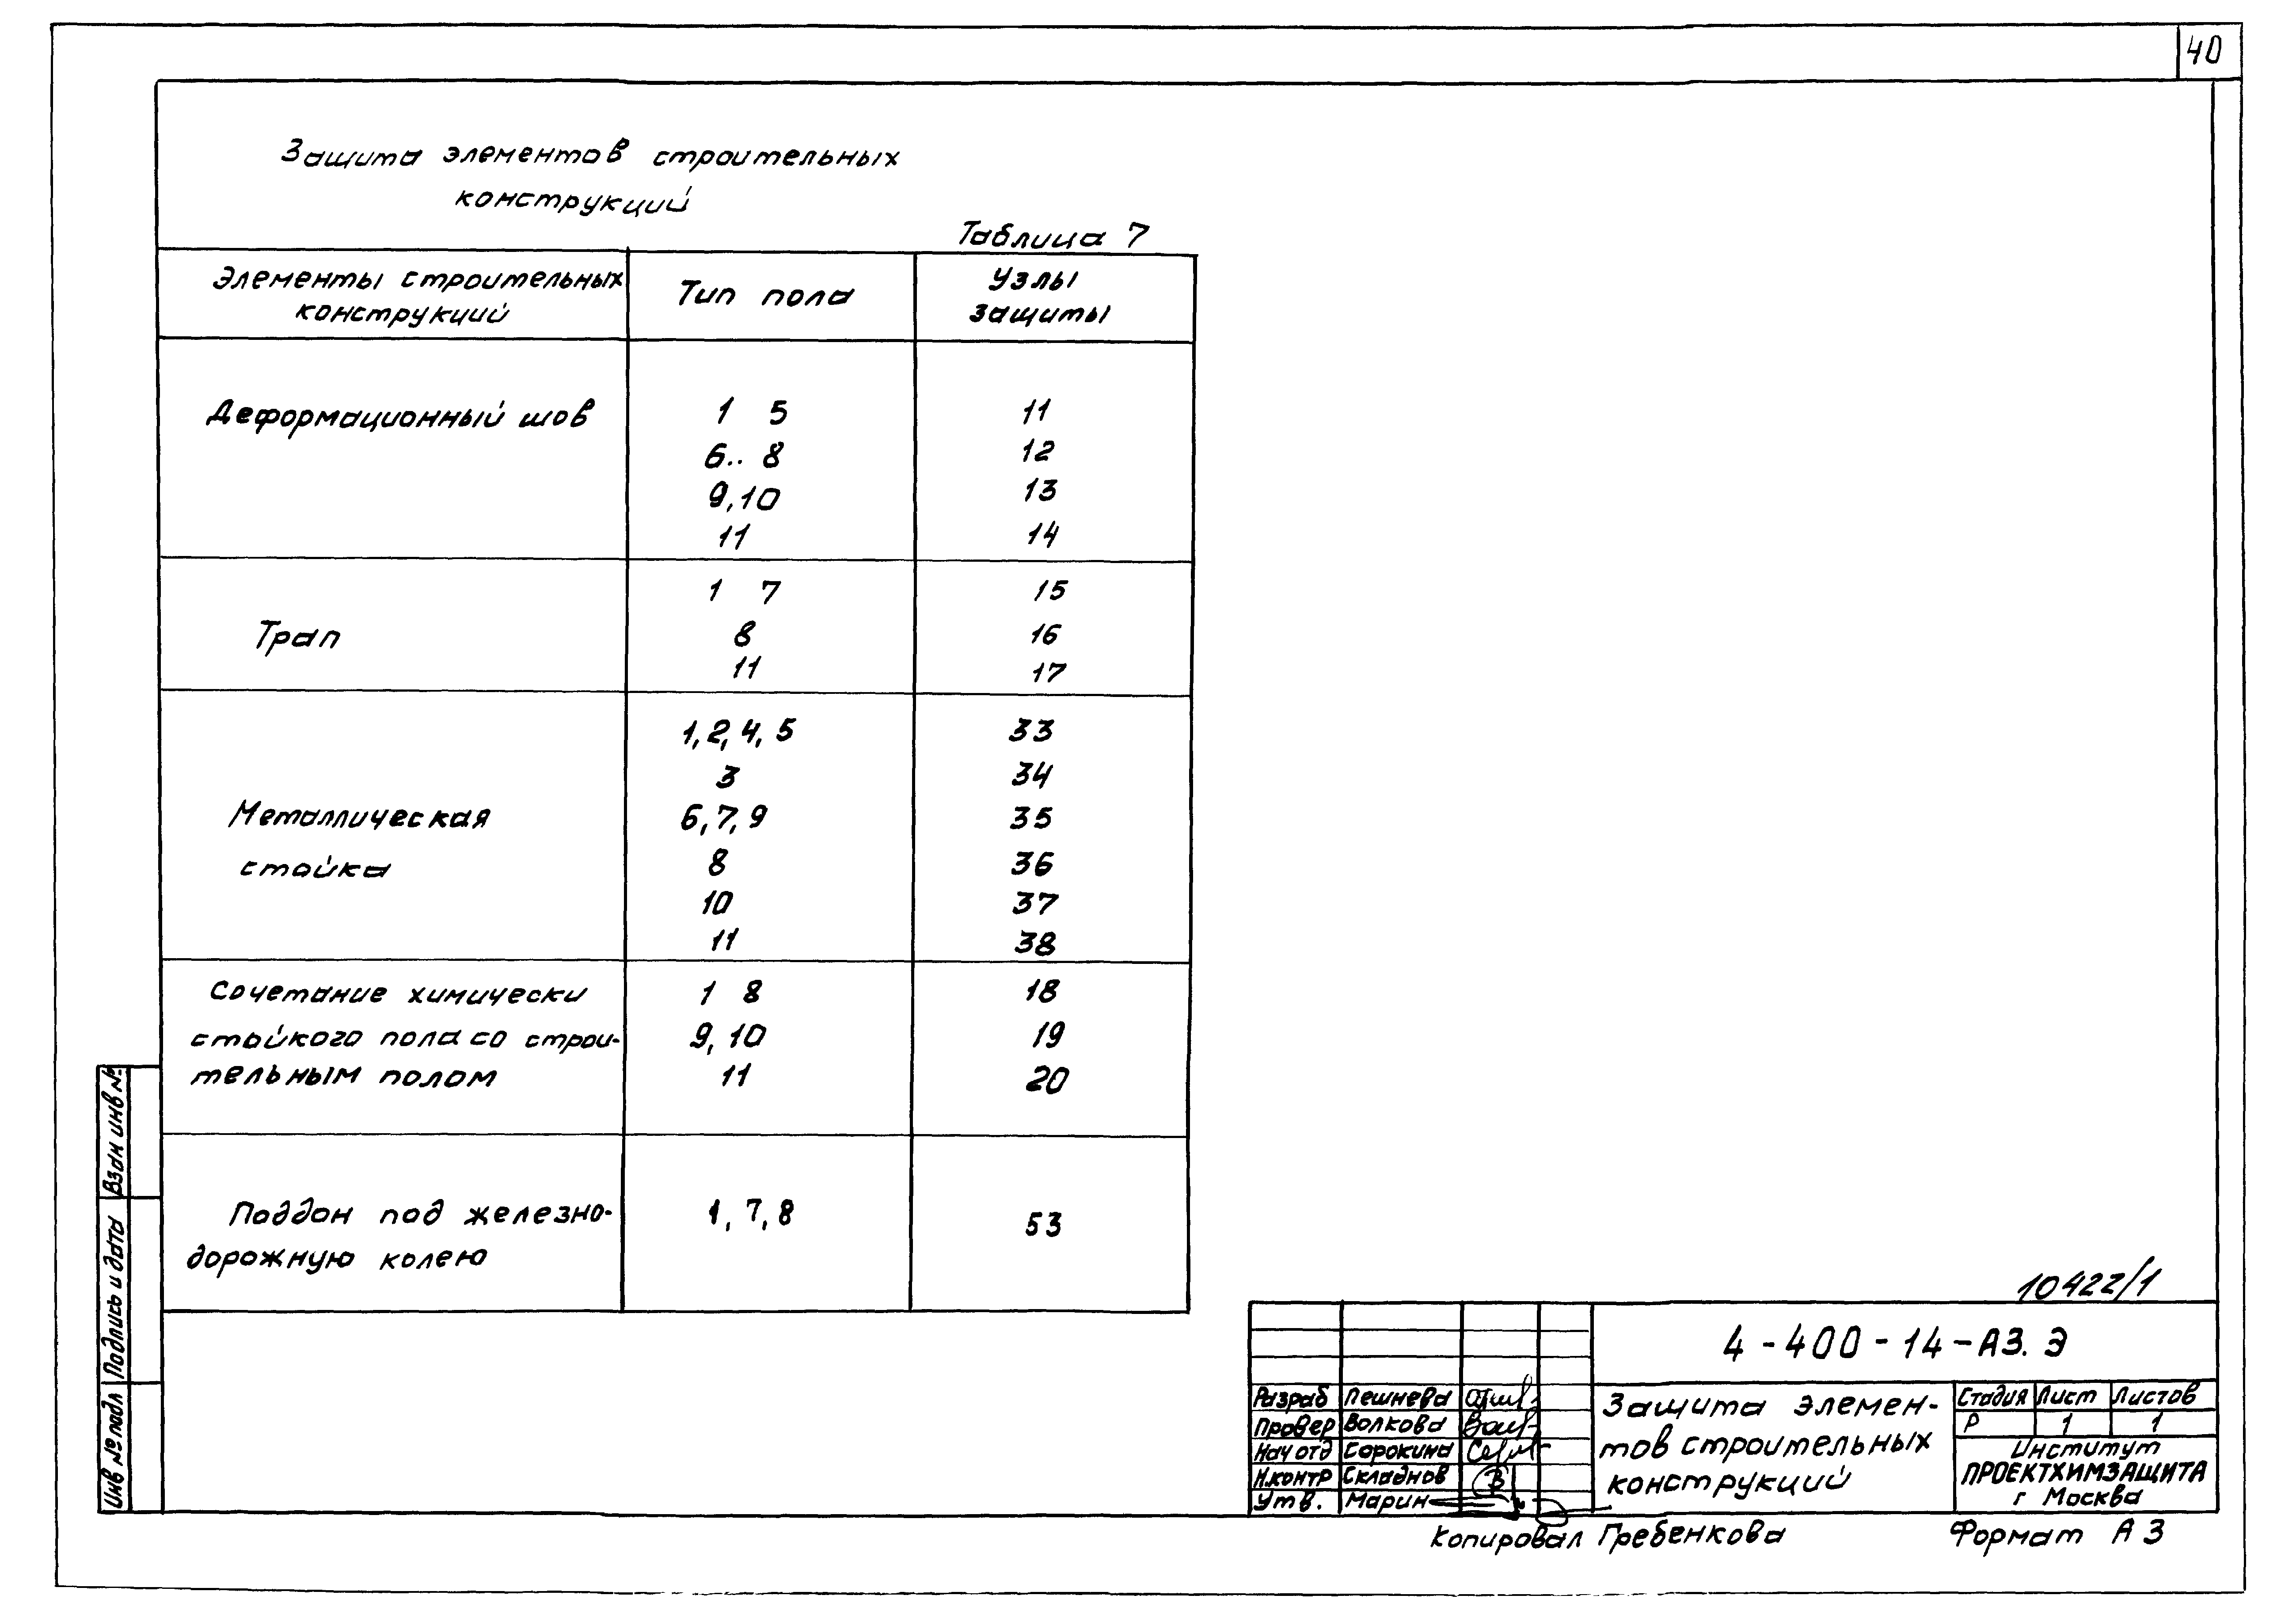 40
Защита элементов строительных
конструкций
Таблица 7
Элементы строительных
конструкций
Тип пола
Узлы
защиты
Деформационный шов
1 5 11
6.. 8 12
9,10 13
11 14
Трап
1 7 15
8 16
11 17
Металлическая
стойка
1,2,4,5 33
3 34
6,7,9 35
8 36
10 37
11 38
Сочетание химически
стойкого пола со строи-
тельным полом
1 8 18
9,10 19
11 20
Поддон под железно-
дорожную колею
1,7,8 53
Взам инв №
Подпись и дата
Инв № подл
10422/1
4-400-14-АЗ.Э
Разраб Пешнева
Провер Волкова
Нач отд Сорокина
Н.контр Складнов
Утв. Марин
Защита элемен-
тов строительных
конструкций
Стадия Лист Листов
Р 1 1
Институт
ПРОЕКТХИМЗАЩИТА
г Москва
Копировал Гребенкова
Формат А3